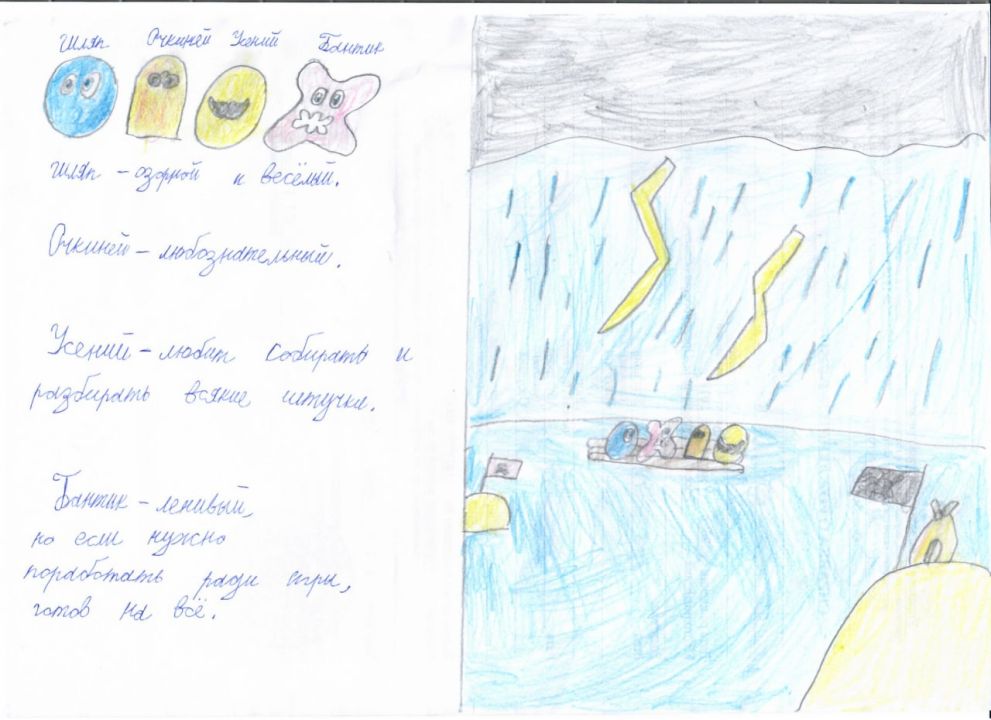 Шляп Очкиней Усений Бантик
Шляп – озорной и весёлый.
Очкиней – любознательный.
Усений – любит собирать и
разбирать всякие штучки.
Бантик – ленивый,
но если нужно
поработать ради игры,
готов на всё.